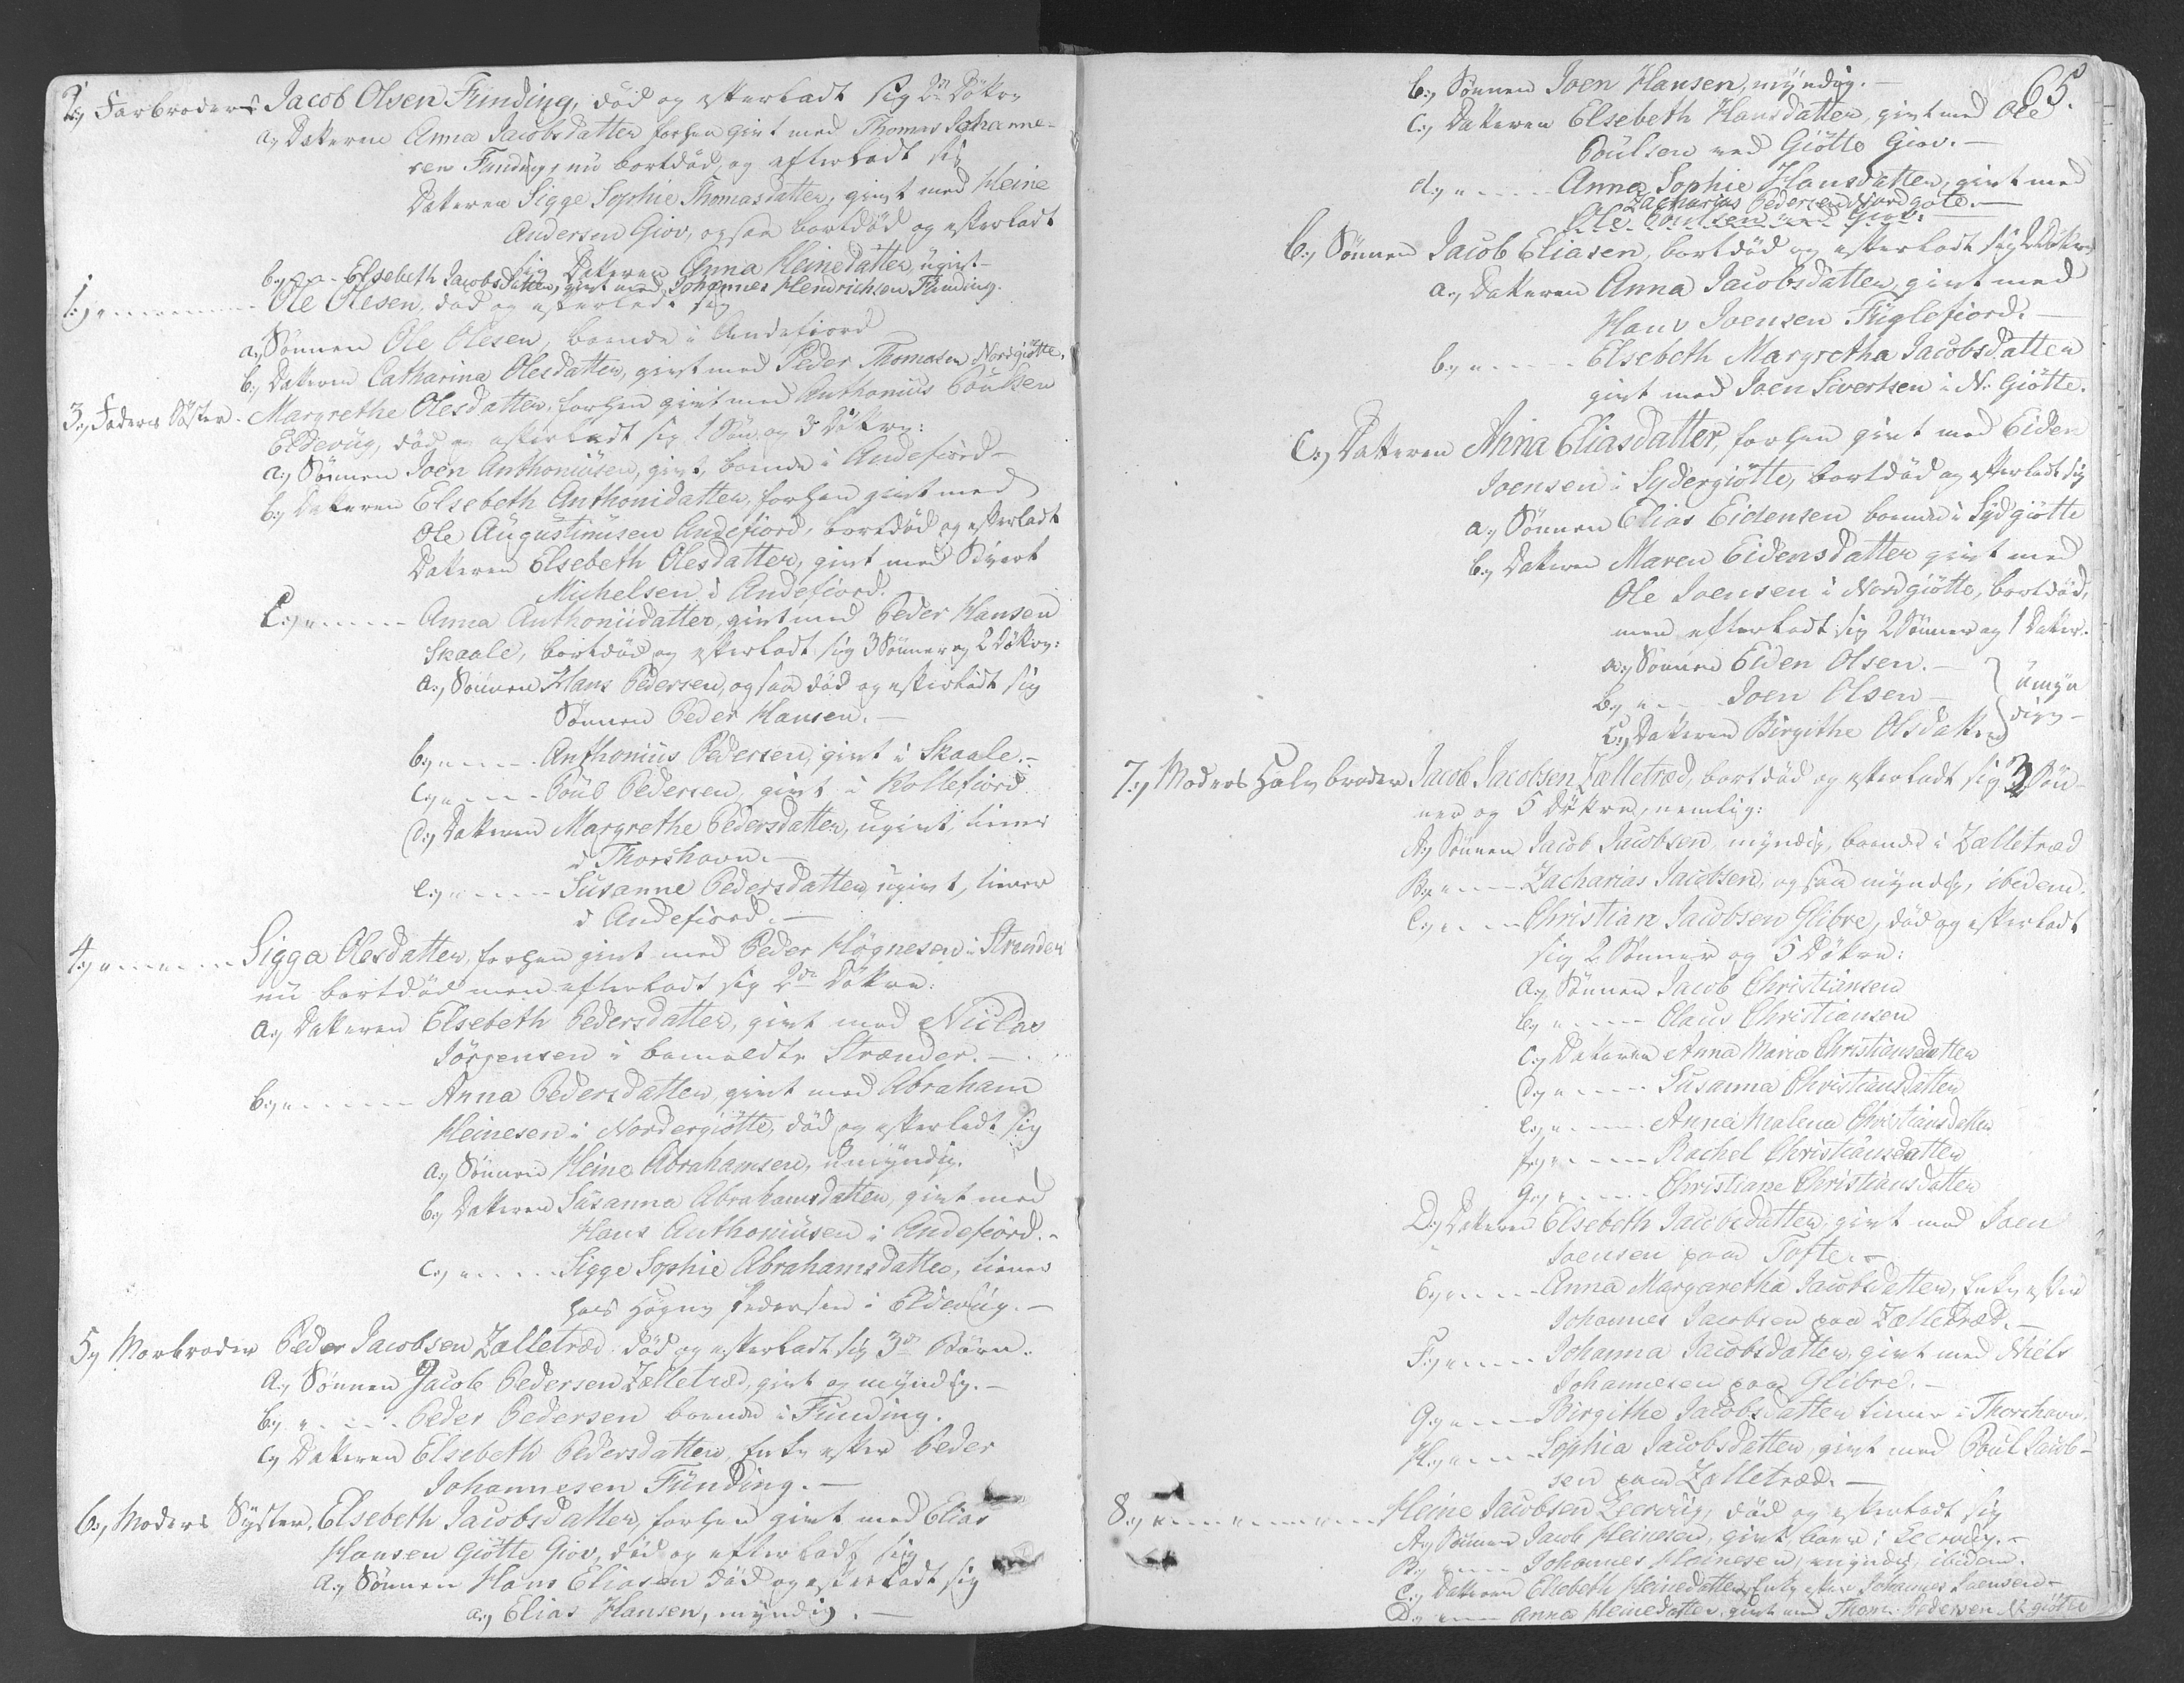 2:, Farbroder Jacob Olsen Funding, död og efterladt sig 2de Döttre
a:, Datteren Anna Jacobsdatter forhen givt med Thomas Johanne-
sen Funding, nu bortdöd, og efterladt sig
Datteren Sigge Sophie Thomasdatter, givt med Heine
Andersen Giov, ogsaa bortdöd og efterladt
sig Datteren Anna Heinedatter, ugivt
b:, Elsebeth Jacobsdatter, givt med Johannes Hendrichsen Funding.
Ole Olesen, död og efterladt sig
a:, Sönnen Ole Olesen, boende i Andefiord
b:, Datteren Catharina Olesdatter, givt med Peder Thomasen Nordgiötte,
3:, Faders Söster Margrethe Olesdatter, forhen givt med Anthonius Poulsen
Eldevüg, död og efterladt sig 1 Sön og 3 Döttre:
a:, Sönnen Joen Anthoniüsen, givt, boende i Andefiord
b:, Datteren Elsebeth Anthonidatter, forhen givt med
Ole Augustinusen Andefiord, bortdöd og efterladt
Datteren Elsebeth Olesdatter, givt med Sivert
Michelsen i Andefiord.
C:, Anna Anthoniidatter, givt med Peder Hansen
Skaale, bortdöd og efterladt sig 3 Sönner og 2 Döttre:
a:, Sönnen Hans Pedersen, ogsaa död og efterladt sig
Sönnen Peder Hansen.
b:, Anthoniüs Pedersen, givt i Skaale.
c:, Poul Pedersen, givt i Kollefiord
d:, Datteren Margrethe Pedersdatter, ugivt, tiener
i Thorshavn.
e:, Susanne Pedersdatter, ugivt, tiener
i Andefiord.
4:, Sigga Olesdatter, forhen givt med Peder Högnesen i Strender
nu bortdöd men efterladt sig 2de Döttre:
a:, Datteren Elsebeth Pedersdatter, givt med Niclas
Jörgensen i bemeldte Strænder.
b:, Anna Pedersdatter, givt med Abraham
Heinesen i Nordergiötte, död og efterladt sig
a:, Sönnen Heine Abrahamsen, umyndig.
b:, Datteren Susanna Abrahamsdatter, givt med
Hans Anthoniüsen i Andefiord.
c:, Sigge Sophie Abrahamsdatter, tiener
hos Högne Pedersen i Eldevüg.
5:, Morbroder Peder Jacobsen Zelletræd död og efterladt sig 3de Börn.
a:, Sönnen Jacob Pedersen Zelletræd, givt og myndig.
b:, Peder Pedersen boende i Funding.
c:, Datteren Elsebeth Pedersdatter, Enke efter Peder
Johannesen Fünding.
6:, Moders Syster, Elsebeth Jacobsdatter, forhen givt med Elias
Hansen Giötte Giov, död og efterladt sig
A:, Sönnen Hans Eliasen död og efterladt sig
a:, Elias Hansen, myndig.
65.
b:, Sönnen Joen Hansen, myndig.
c:, Datteren Elsebeth Hansdatter, givt med Ole
Poülsen ved Giötte Giov.
d:, Anna Sophie Hansdatter, givt med
Zacharias Pedersen Nordgöte.
Ole Poulsen ved Giov.
B:, Sönnen Jacob Eliasen, bortdöd og efterladt sig 2 Döttre
a:, Datteren Anna Jacobsdatter, givt med
Hans Joensen Fuglefiord.
b:, Elsebeth Margretha Jacobsdatter
givt med Joen Sivertsen i N. Giötte.
C:, Datteren Anna Eliasdatter, forhen givt med Eiden
Joensen i Sydergiötte, bortdöd og efterladt sig
a:, Sönnen Elias Eidensen boende i Sydgiötte
b:, Datteren Maren Eidensdatter givt med
Ole Joensen i Nordgiötte, bortdöd,
men efterladt sig 2 Sönner og 1 Datter.
a:, Sönnen Eiden Olsen.
b:, Joen Olsen
c:, Datteren Birgithe Olsdatter
umyn
dige
7:, Moders Halvbroder Jacob Jacobsen Zælletræd, bortdöd og efterladt sig 3 Sön-
ner og 5 Döttre, nemlig:
A:, Sönnen Jacob Jacobsen myndig, boende i Zælletræd
B:, Zacharias Jacobsen, ogsaa myndig, ibidem.
C:, Christian Jacobsen Glibre, död og efterladt
sig 2 Sönner og 5 Döttre:
a:, Sönnen Jacob Christiansen
b:, Claus Christiansen
c:, Datteren Anna Maria Christiansdatter
d:, Susanna Christiansdatter
e:, Anna Malena Christiansdatter
f:, Rachel Christiansdatter
g:, Christiane Christiansdatter
D:, Datteren Elsebeth Jacobsdatter, givt med Joen
Joensen paa Tofte.
E:, Anna Margaretha Jacobsdatter, Enke efter
Johannes Jacobsen paa Zælletræd.
F:, Johanna Jacobsdatter, givt med Niels
Johannesen paa Glibre.
G:, Birgithe Jacobsdatter tiener i Thorshavn.
H:, Sophia Jacobsdatter, givt med Poul Jacob-
sen paa Zelletræd.
8:, Heine Jacobsen Leervüg, död og efterladt sig
A:, Sönnen Jacob Heinesen, givt, boer i Leervüg.
B:, Johannes Heinesen, myndig, ibidem.
C:, Datteren Elsebeth Heinedatter, Enke efter Johannes Joensen
D:, Anna Heinedatter, givt med Thom. Pedersen N. giötte